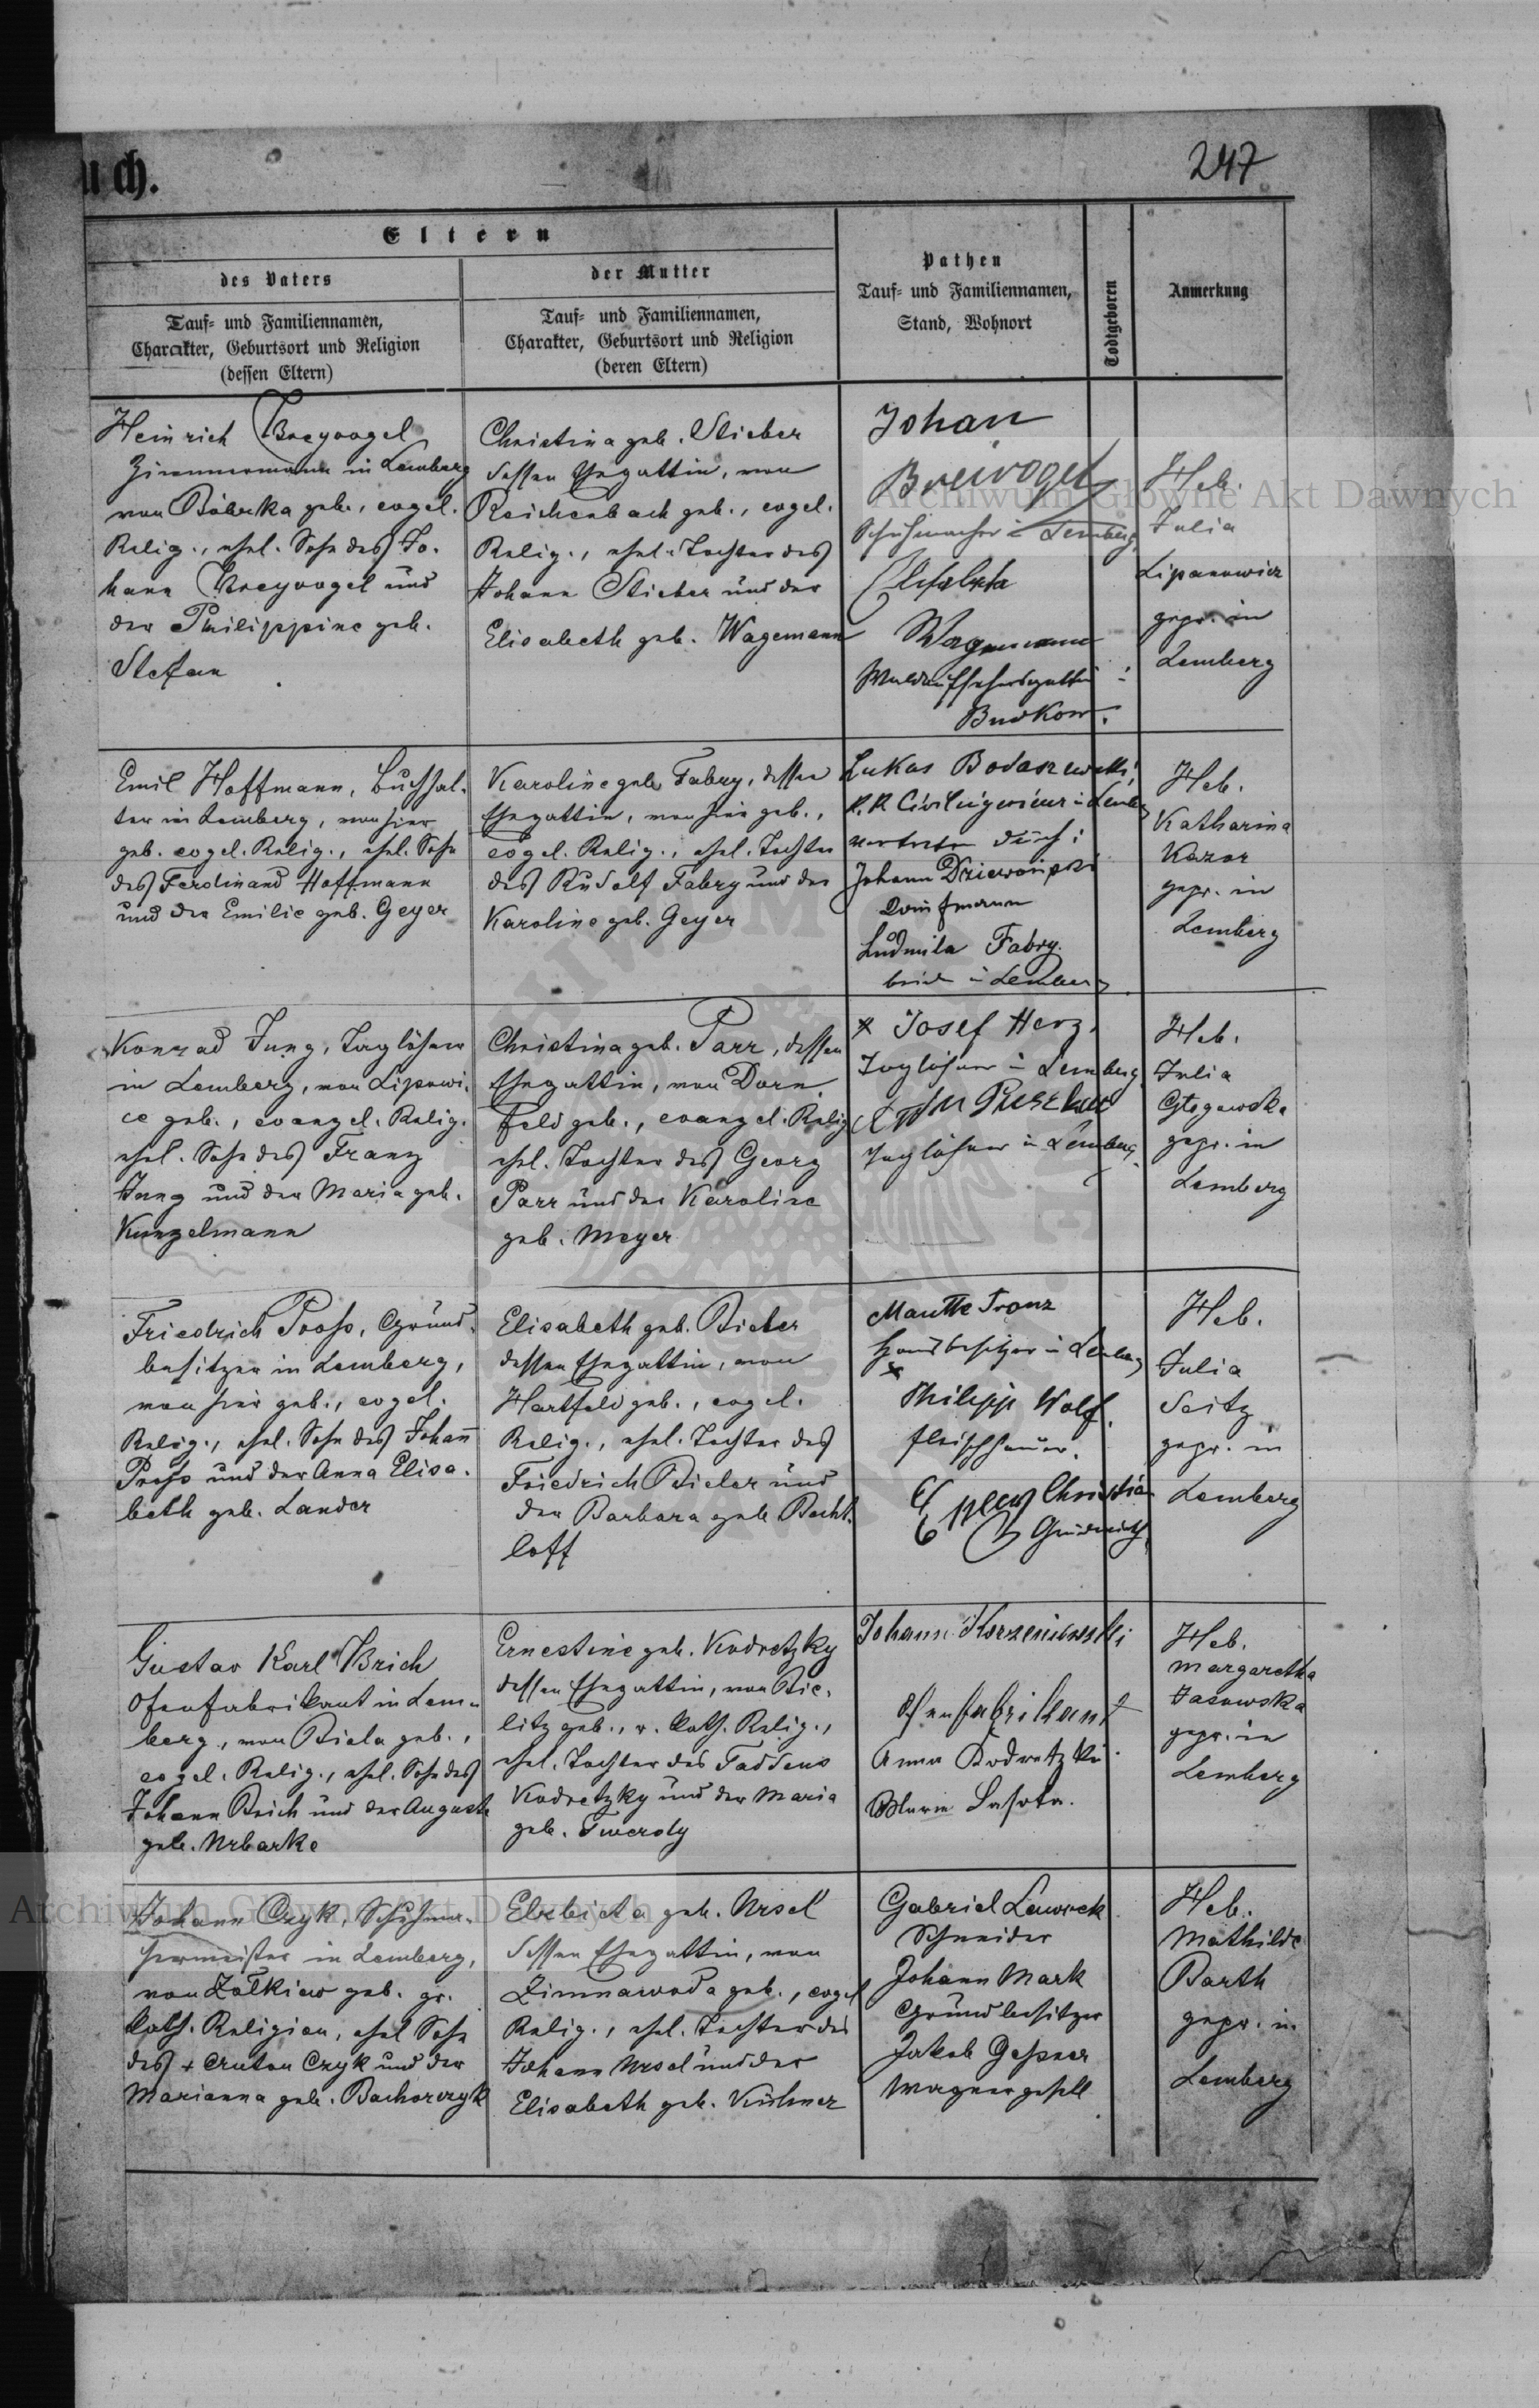 uch.
247
Eltern
des Vaters
der Mutter
Pathen
Tauf- und Familiennamen,
Stand, Wohnort
Todtgeboren
Anmerkung
Tauf- und Familiennamen,
Charakter, Geburtsort und Religion
(dessen Eltern)
Tauf- und Familiennamen,
Charakter, Geburtsort und Religion
(deren Eltern)
Heinrich Breyvogel
Zimmermann in Lemberg
von Bóbrka geb., evgel.
Relig., ehel. Sohn des Jo-
hann Breyvogel und
der Philippine geb.
Stefan
Christina geb. Stieber
dessen Ehegattin, von
Reichenbach geb., evgel.
Relig., ehel. Tochter des
Johann Stieber und der
Elisabeth geb. Wagemann
Johan
Breivogel
Schuhmacher in Lemberg
Wagemann
Budkow.
Heb.
Julia
Lipanowicz
gepr. in
Lemberg
Emil Hoffmann, Buchhal-
ter in Lemberg, von hier
geb. evgel. Relig., ehel. Sohn
des Ferdinand Hoffmann
und der Emilie geb. Geyer
Karoline geb. Fabry, dessen
Ehegattin, von hier geb.,
evgel. Relig., ehel. Tochter
des Rudolf Fabry und der
Karoline geb. Geyer
Lukas Bodaszewski
k. k. Civilingenieur in Lemberg
vertreten durch:
Johann
Kaufmann
Ludmila Fabry
in Lemberg
Heb.
Katharina
Kazar
gepr. in
Lemberg
Konrad Jung, Taglöhner
in Lemberg, von Lipowi-
ce geb., evangel. Relig.
ehel. Sohn des Franz
Jung und der Maria geb.
Kunzelmann
Christina geb. Parr, dessen
Ehegattin, von Dorn
feld geb., evangel. Relig
ehel. Tochter des Georg
Parr und der Karoline
geb. Meyer
x Josef Herz,
Taglöhner in Lemberg
Taglöhner in Lemberg
Heb.
Julia
Głogowska
gepr. in
Lemberg
Friedrich Prohs, Grund-
besitzer in Lemberg,
von hier geb., evgel.
Relig., ehel. Sohn des Johann
Prohs und der Anna Elisa-
beth geb. Lander
Elisabeth geb. Bieler
dessen Ehegattin, von
Hartfeld geb., evgel.
Relig., ehel. Tochter des
Friedrich Bieler und
der Barbara geb. Becht-
loff
Manthe Franz
Hausbesitzer in Lemberg
x
Philipp Wolf.
Fleischhauer.
Christian
Heb.
Julia
Seitz
gepr. in
Lemberg
Gustav Karl Brich
Ofenfabrikant in Lem-
berg, von Biala geb.,
evgel. Relig., ehel. Sohn des
Johann Brich und der Auguste
geb. Urbanke
Ernestine geb. Kodretzky
dessen Ehegattin, von Bie-
litz geb., r. kath. Relig.,
ehel. Tochter des Taddeus
Kodretzky und der Maria
geb. Twerdy
Johann Korzeniowski
Ofenfabrikant
Anna Kodretzki
Maria Lasota.
Heb.
Margaretha
Jasowska
gepr. in
Lemberg
Johann Czyk, Schuhma-
chermeister in Lemberg,
von Żółkiew geb. gr.
kath. Religion, ehel. Sohn
des + Anton Czyk und der
Marianna geb. Bachorczyk
Elżbieta geb. Ursel
dessen Ehegattin, von
Zimnawoda geb., evgel
Relig., ehel. Tochter des
Johann Ursel und der
Elisabeth geb. Kühner
Gabriel Lawrek
Schneider
Johann Mark
Grundbesitzer
Jakob Gessner
Wagnergesell
Heb.
Mathilde
Barth
gepr. in
Lemberg
Archiwum Główne Akt Dawnych
Archiwum Główne Akt Dawnych